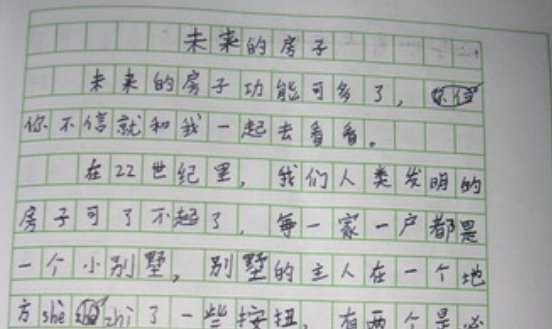 未来的房子
未来的房子功能可多了，
你不信就和我一起去看看。
在22世纪里，我们人类发明的
房子可了不起了，每一家一户都是
一个小别墅，别墅的主人在一个地
方shè zhì了一些按扭，有两个是必